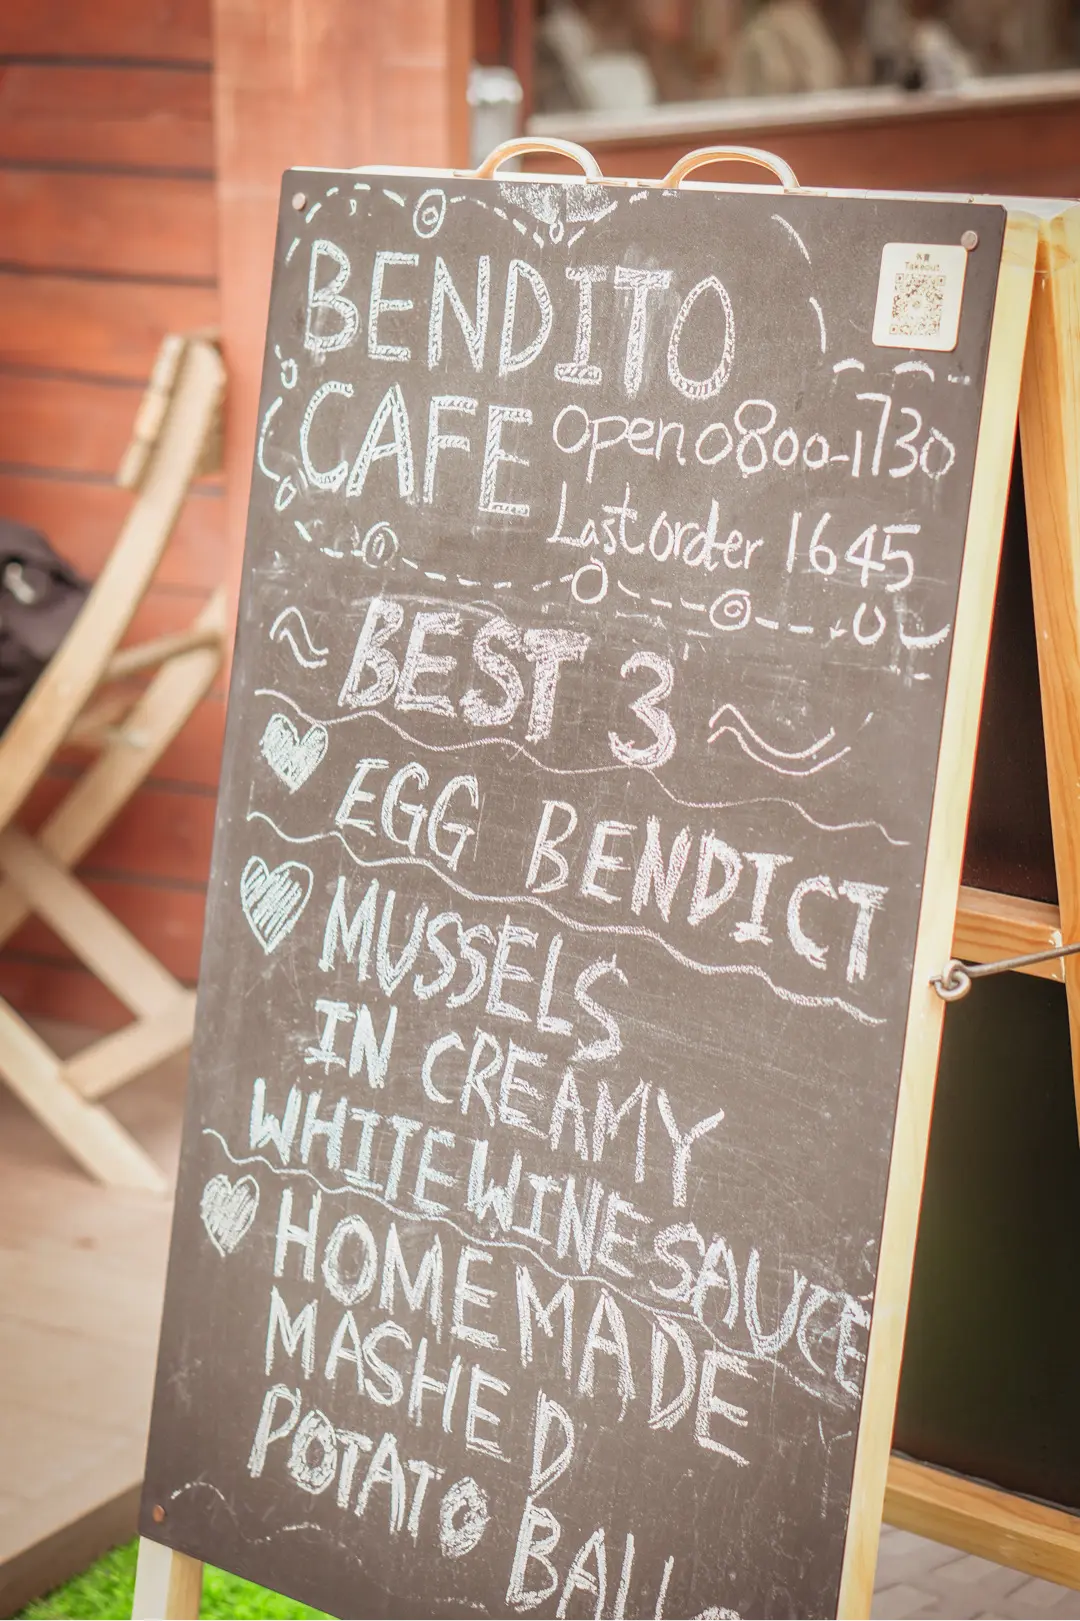 外賣
Takeout
BENDITO
CAFE
Open 0800-1730
Last order 1645
BEST 3
EGG BENDICT
MUSSELS
IN CREAMY
WHITE WINE SAUCE
HOMEMADE
MASHED
POTATO BALL